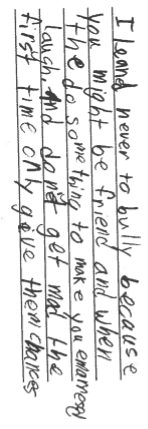 I leand never to bully because
you might be friend and when
the do something to make you embarresy
laugh. And do not get mad the
first time only give them chances